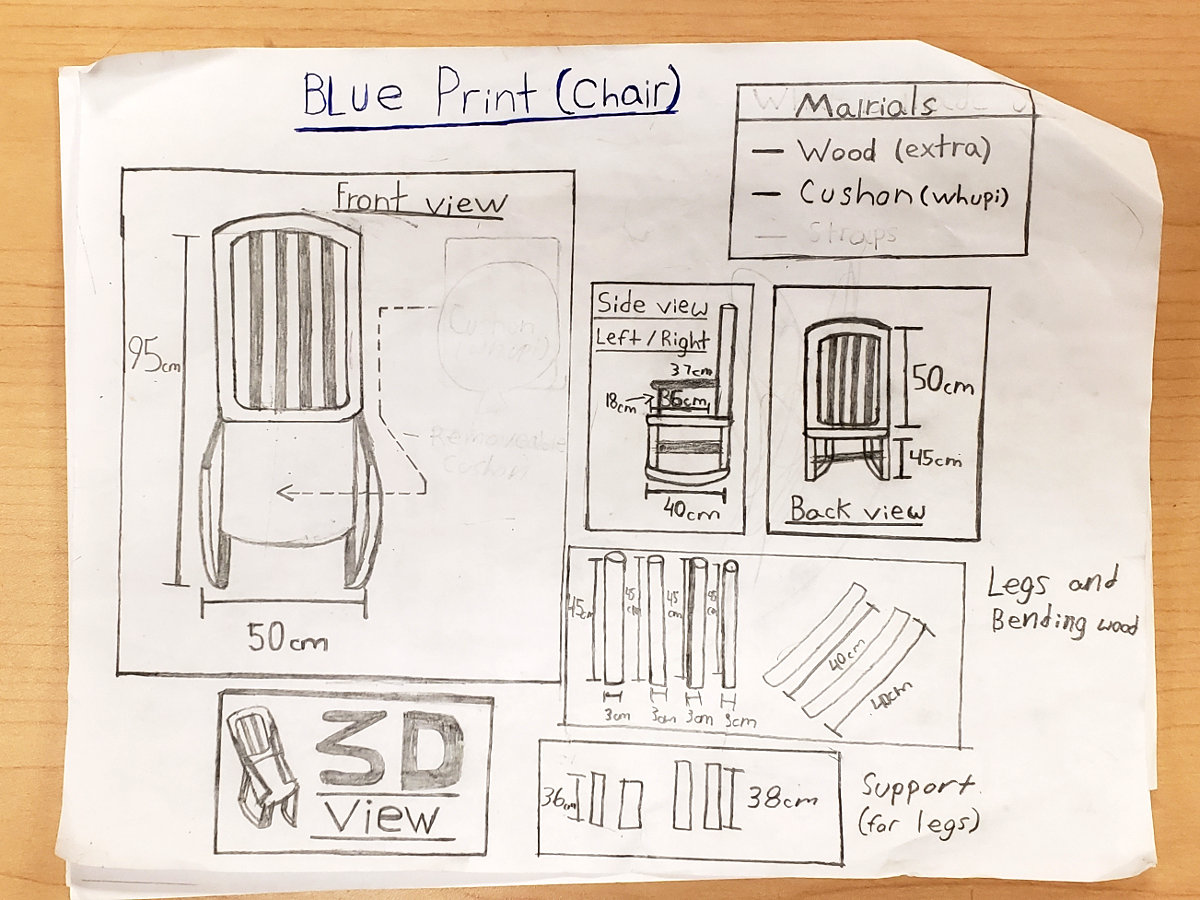 BLue Print (Chair)
Malrials
— Wood (extra)
— Cushon (whupi)
— Straps
Front view
95cm
50cm
Cushon
(whupi)
— Removeable
Cushon
Side view
Left / Right
37cm
18cm
36cm
40cm
50cm
45cm
Back view
45cm
45cm
45cm
45cm
3cm
3cm
3cm
3cm
40cm
40cm
Legs and
Bending wood
3D
View
36cm
38cm
Support
(for legs)